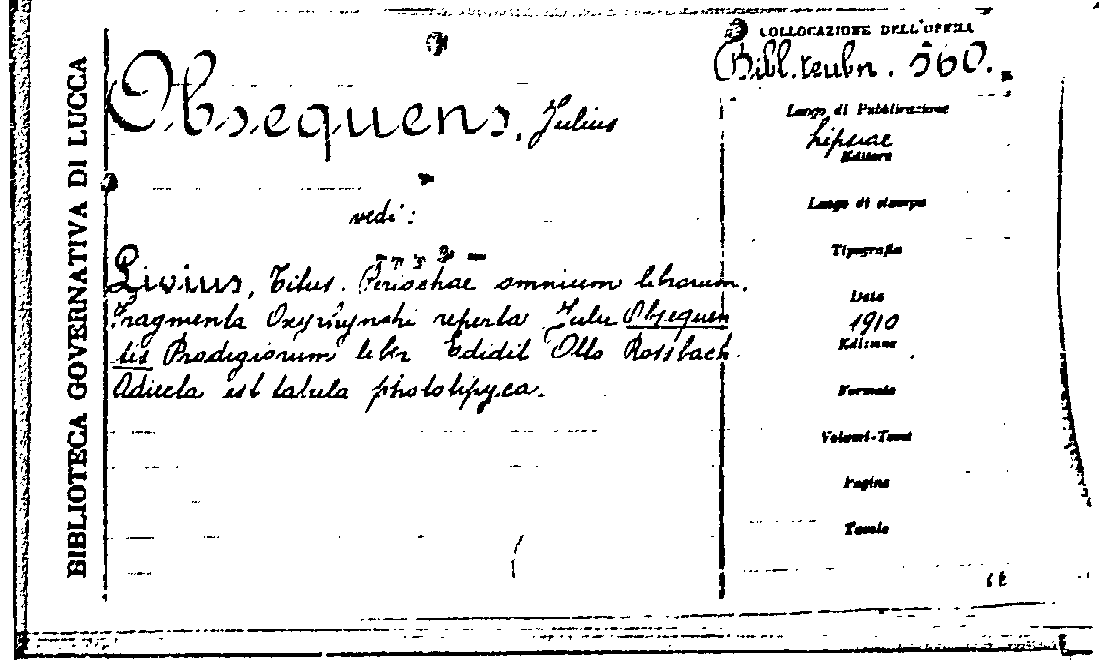 BIBLIOTECA GOVERNATIVA DI LUCCA
Obsequens, Julius
vedi:
Livius, Titus. Periochae omnium librorum.
Fragmenta Oxyrhynchi reperta Julii Obsequen
tis Prodigiorum liber Edidit Otto Rossbach.
Adiecta est tabula phototipyca.
COLLOCAZIONE DELL'OPERA
Bibl. teubn. 560.
Luogo di Pubblicazione
Lipsiae
Editore
Luogo di stampa
Tipografia
Data
1910
Edizione
Formato
Volumi-Tomi
Pagine
Tavole